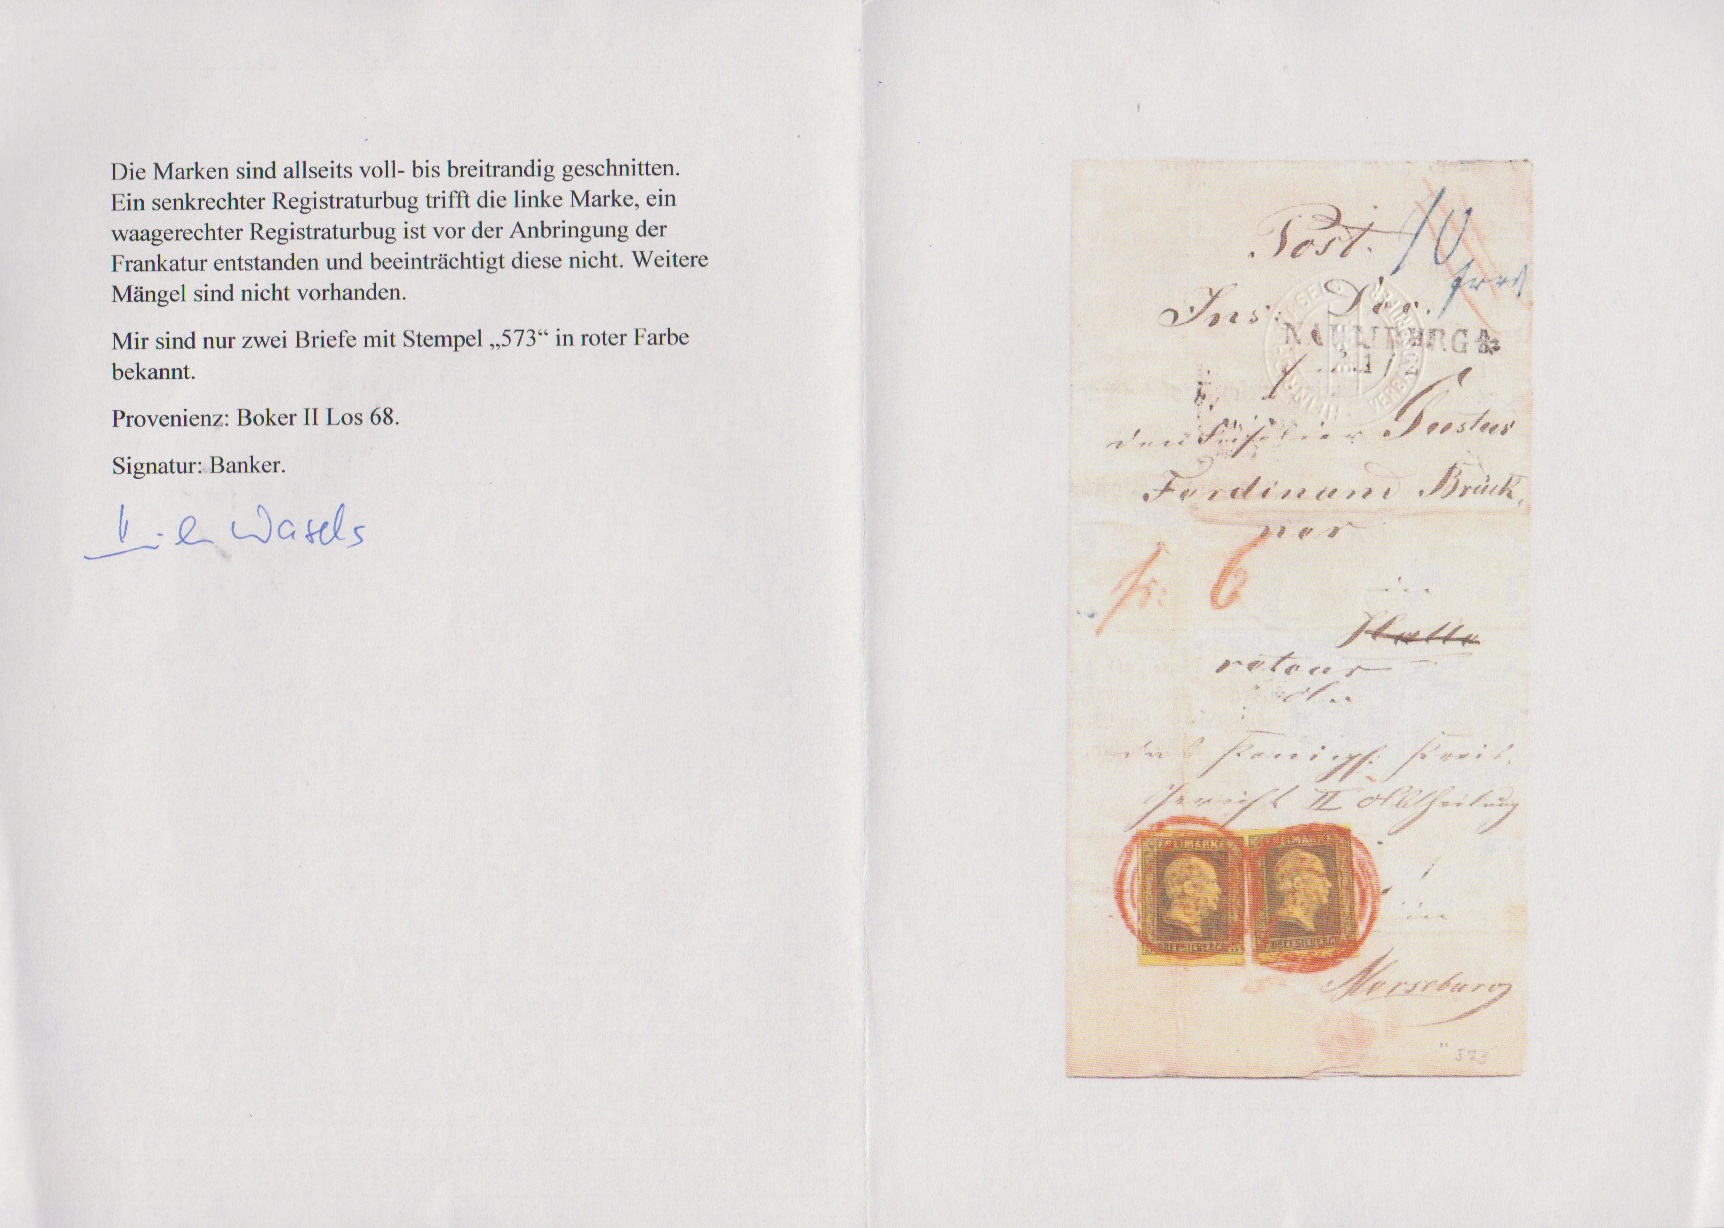 Die Marken sind allseits voll- bis breitrandig geschnitten.
Ein senkrechter Registraturbug trifft die linke Marke, ein
waagerechter Registraturbug ist vor der Anbringung der
Frankatur entstanden und beeinträchtigt diese nicht. Weitere
Mängel sind nicht vorhanden.
Mir sind nur zwei Briefe mit Stempel „573“ in roter Farbe
bekannt.
Provenienz: Boker II Los 68.
Signatur: Banker.
Wasels
Post. 10
Ins. Doc.
NAUMBURG A/S
Ferdinand Brück
ner
6
in
Halle
retour
II Abtheilung
FREIMARKE FREIMARKE
DREI SILBERGR. DREI SILBERGR.
in
Merseburg
" 573